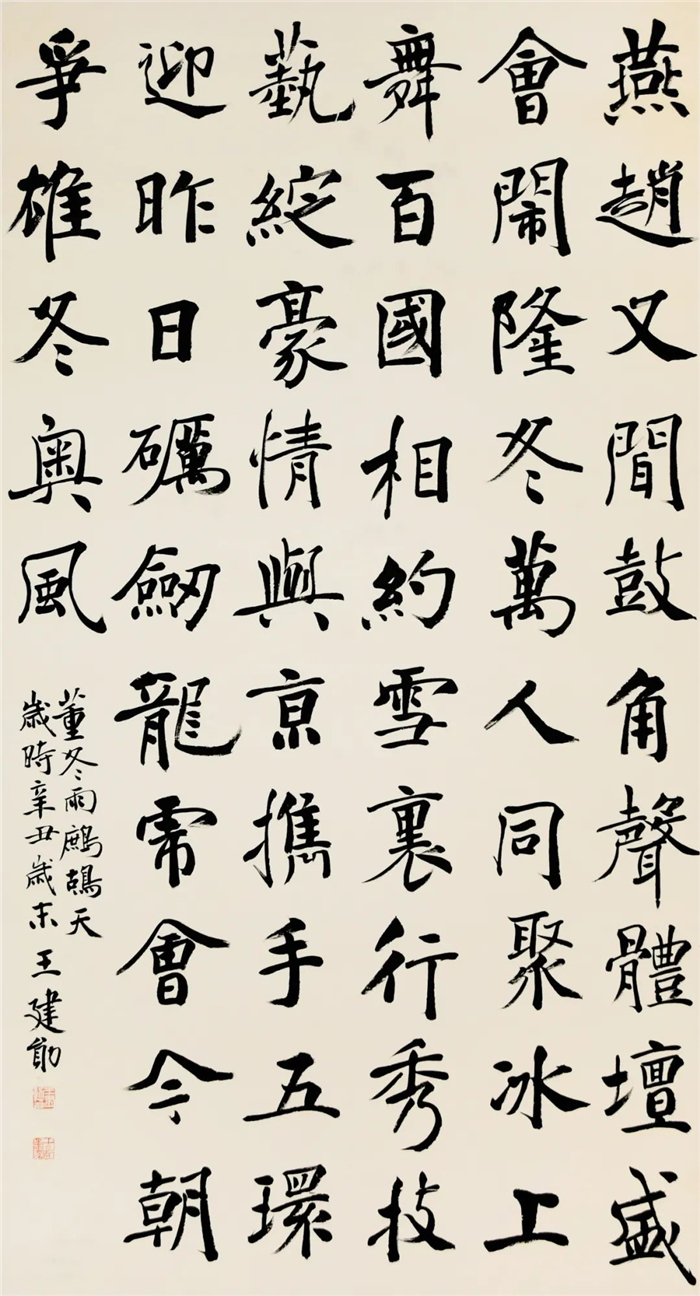 燕趙又聞鼓角聲體壇盛
會鬧隆冬萬人同聚冰上
舞百國相約雪裏行秀技
藝綻豪情與京攜手五環
迎昨日礪劒龍虎會今朝
爭雄冬奧風
董冬雨鷓鴣天
歲時辛丑歲末王建勛